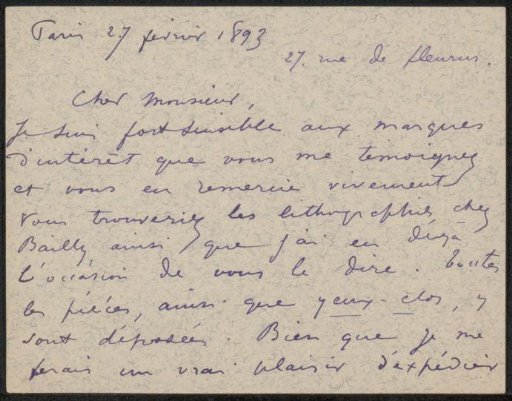 Paris 27 février 1893
27. rue de fleurus.
Cher Monsieur,
Je suis fort sensible aux marques
d'intérêt que vous me témoignez
et vous en remercie vivement
Vous trouveriez les lithographies chez
Bailly ainsi que j'ai eu déja
l'occasion de vous le dire. toutes
les pièces, ainsi que yeux-clos, y
sont déposées. Bien que je me
ferais un vrai plaisir d'expédier